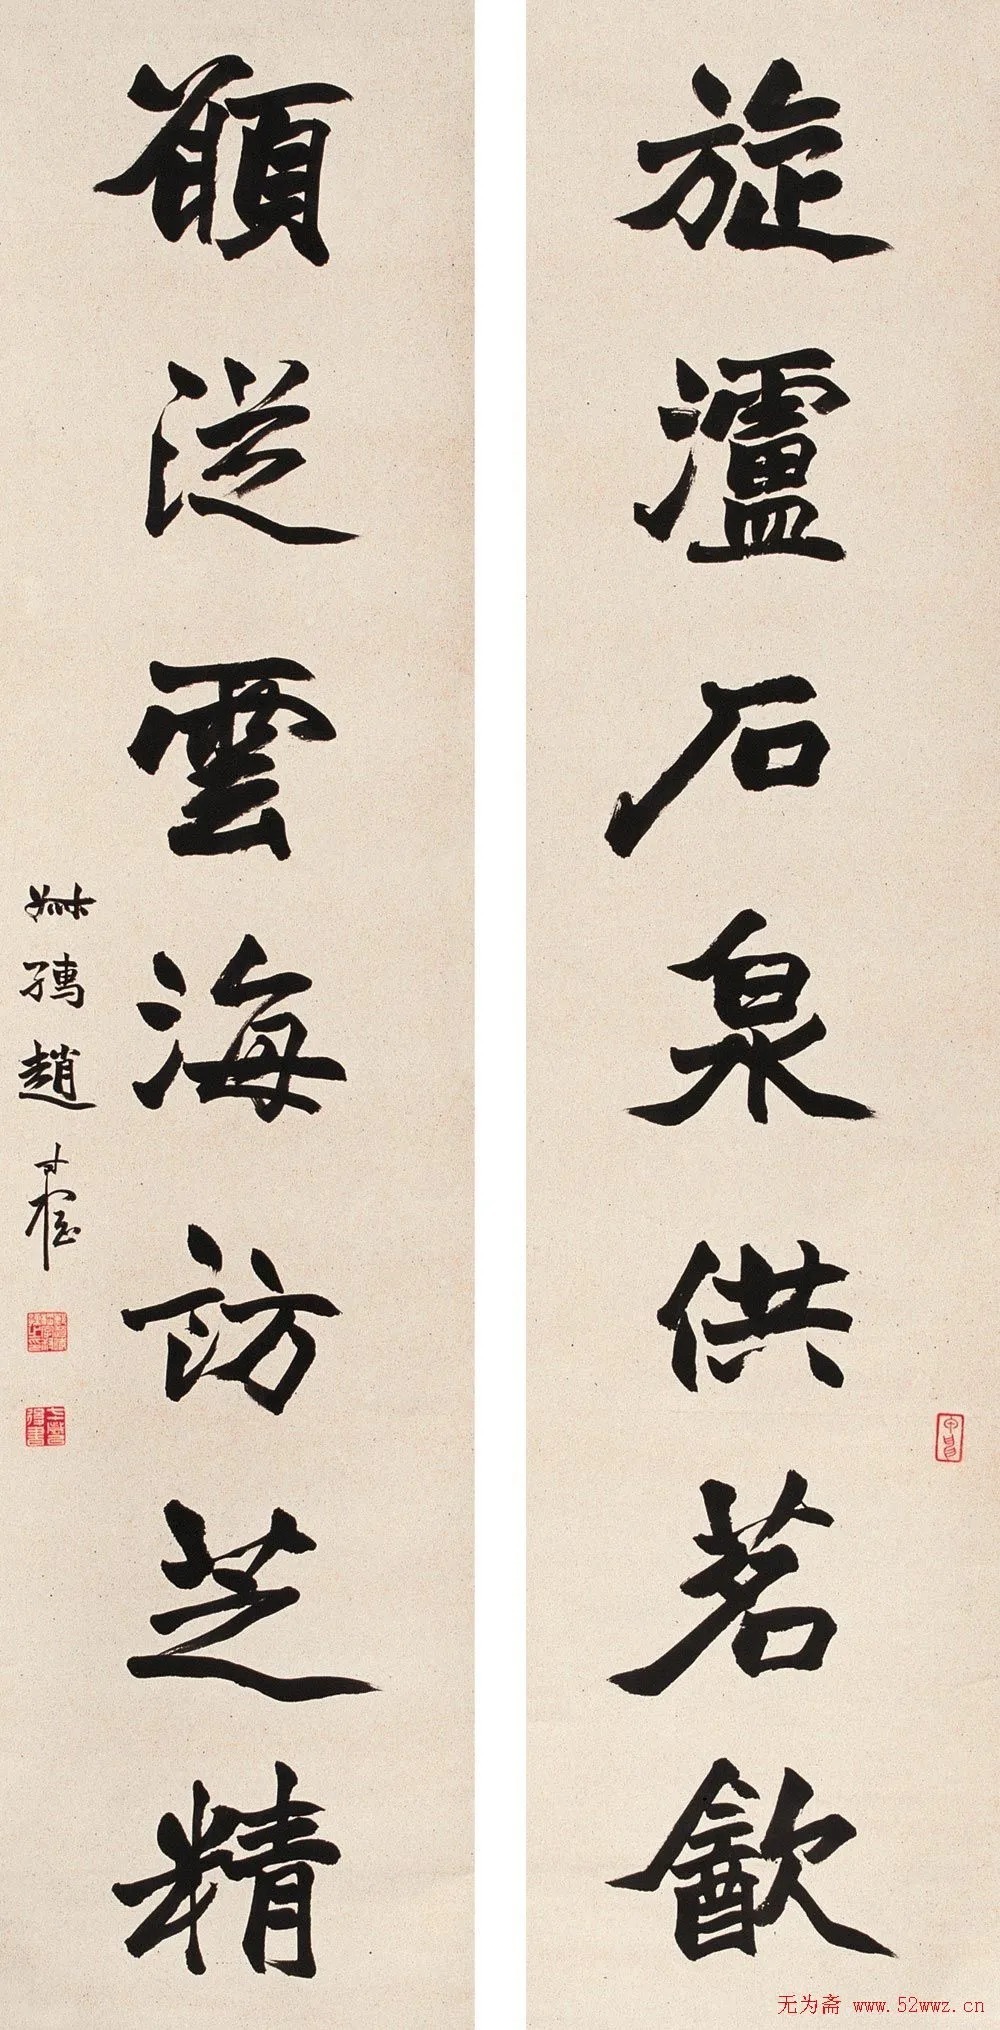 旋瀘石泉供茗㱃
願從雲海訪芝精
叔孺趙時棡
无为斋 www.52wwz.cn